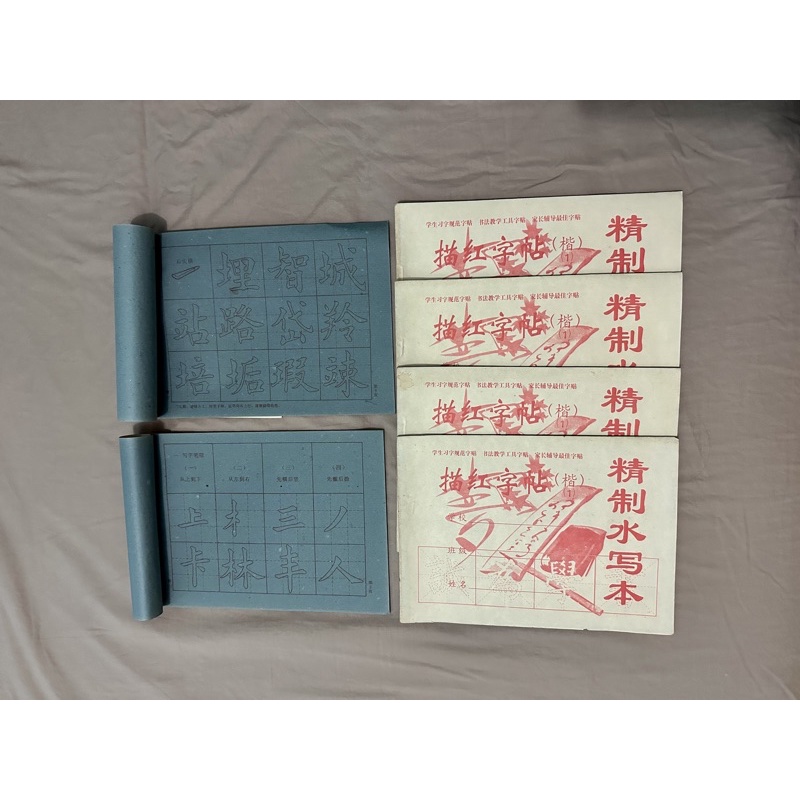 一 埋 智 城
站 路 岱 羚
培 垢 瑕 竦
(一) (二) (三) (四)
从上到下 从左到右 先横后竖 先撇后捺
上 木 三 丿
卡 林 丰 人
学生习字规范字帖 书法教学工具字帖 家长辅导最佳字帖
描红字帖(楷)
(1)
精制
学生习字规范字帖 书法教学工具字帖 家长辅导最佳字帖
描红字帖(楷)
(1)
精制水
学生习字规范字帖 书法教学工具字帖 家长辅导最佳字帖
描红字帖(楷)
(1)
精制
学生习字规范字帖 书法教学工具字帖 家长辅导最佳字帖
描红字帖(楷)
(1)
精制水写本
学校
班级
姓名